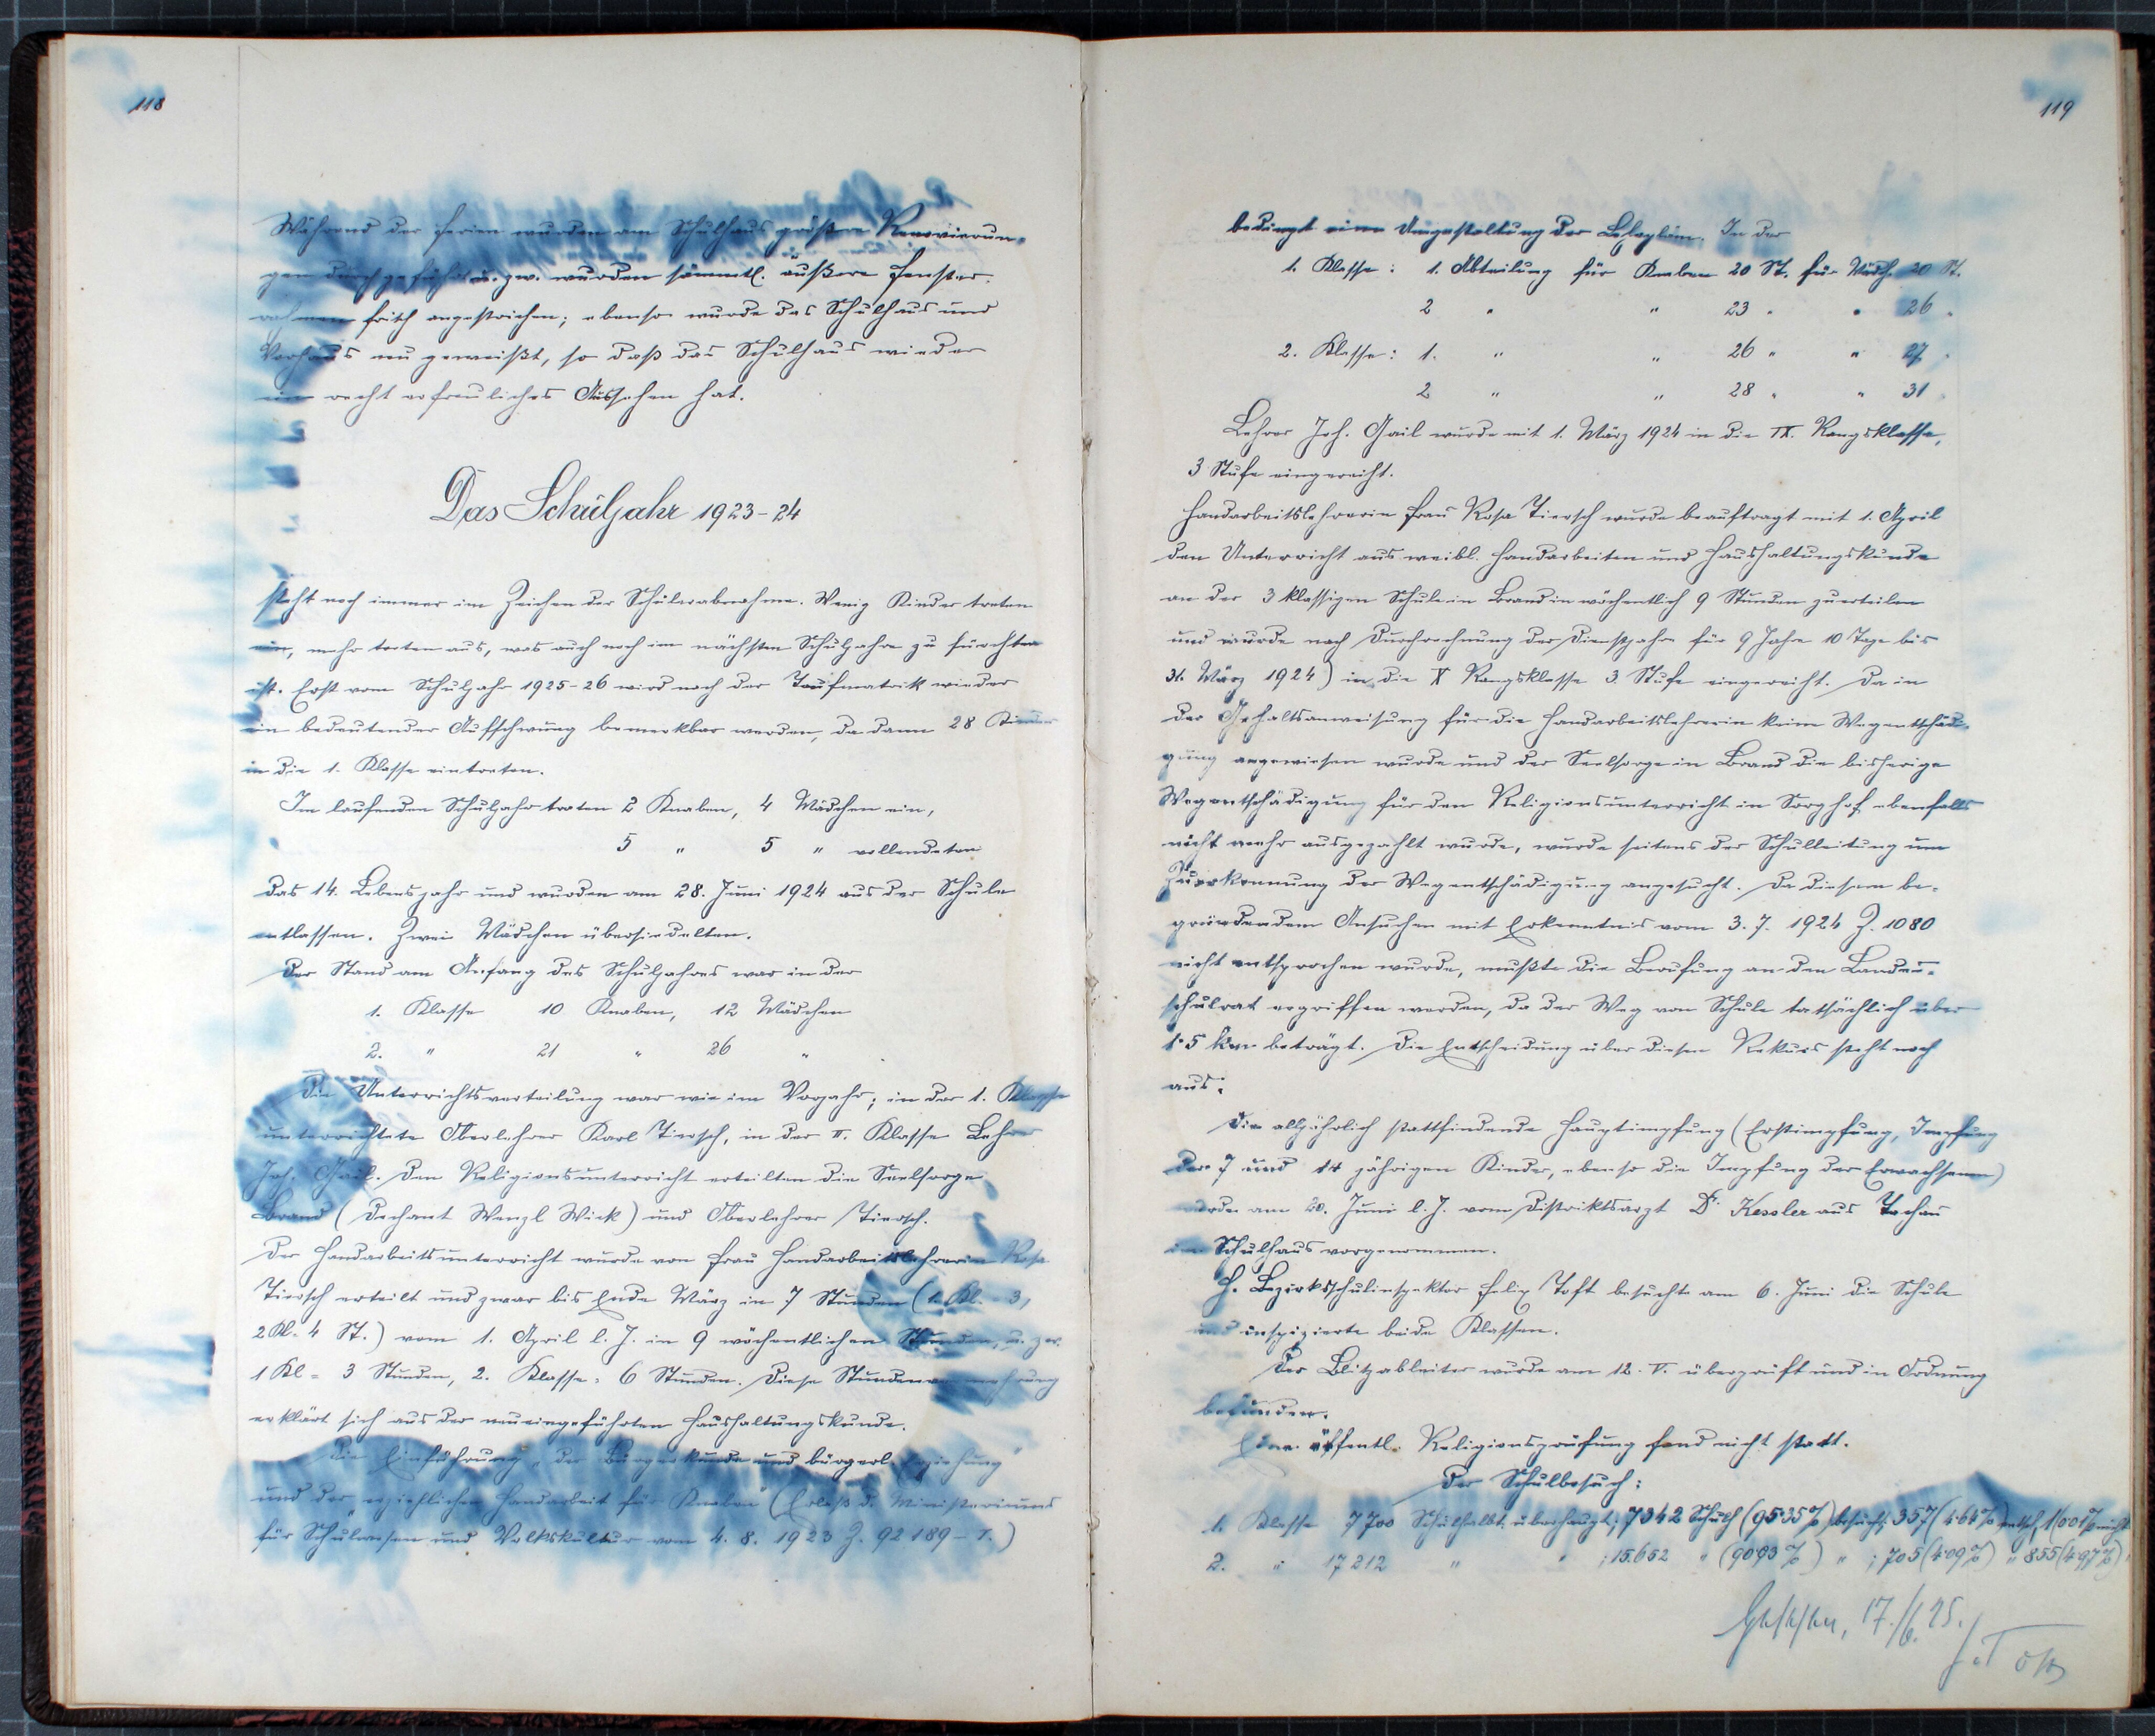 118
Während der Ferien wurden am Schulhaus größere Renovierun-
gen durchgeführt u. zw. wurden sämmtl. äußere Fenster-
rahmen frisch angestrichen; ebenso wurde das Schulhaus und
Vorhaus neu geweißt, so daß das Schulhaus wieder
ein recht erfreuliches Aussehen hat.
Das Schuljahr 1923-24
steht noch immer im Zeichen der Schülerabnahme. Wenig Kinder treten
ein, mehr treten aus, was auch noch im nächsten Schuljahre zu fürchten
ist. Erst vom Schuljahr 1925-26 wird nach der Taufmatrik wieder
ein bedeutender Aufschwung bemerkbar werden, da dann 28 Kinder
in die 1. Klasse eintreten.
Im laufenden Schuljahr traten 2 Knaben, 4 Mädchen ein,
5 " 5 " vollendeten
das 14. Lebensjahr und wurden am 28. Juni 1924 aus der Schule
entlassen. Zwei Mädchen übersiedelten.
Der Stand am Anfang des Schuljahres war in der
1. Klasse 10 Knaben, 12 Mädchen
2. " 21 " 26 "
Die Unterrichtsverteilung war wie im Vorjahr; in der 1. Klasse
unterrichtete Oberlehrer Karl Tiersch, in der II. Klasse Lehrer
Joh. Gail. Den Religionsunterricht erteilten die Seelsorge
Brand (Dechant Wenzl Wick) und Oberlehrer Tiersch.
Der Handarbeitsunterricht wurde von Frau Handarbeitslehrerin Rosa
Tiersch erteilt und zwar bis Ende März in 7 Stunden (1. Kl. = 3,
2 Kl. 4 St.) vom 1. April l. J. in 9 wöchentlichen Stunden, u. zw.
1 Kl = 3 Stunden, 2. Klasse = 6 Stunden. Diese Stundenvermehrung
erklärt sich aus der neueingeführten Haushaltungskunde.
Die Einführung „der Bürgerkunde und bürgerl. Erziehung"
und der „erziehlichen Handarbeit für Knaben" (Erlaß d. Ministeriums
für Schulwesen und Volkskultur vom 4. 8. 1923 Z. 92189 - I.)
119
bedingt eine Umgestaltung der Lehrpläne. In der
1. Klasse: 1. Abteilung für Knaben 20 St. für Mädch. 20 St.
2 " " 23 " " 26 "
2. Klasse: 1. " " 26 " " 27 "
2 " " 28 " " 31 "
Lehrer Joh. Gail wurde mit 1. März 1924 in die IX. Rangsklasse,
3 Stufe eingereiht.
Handarbeitslehrerin Frau Rosa Tiersch wurde beauftragt mit 1. April
den Unterricht aus weibl. Handarbeiten und Haushaltungskunde
an der 3 klassigen Schule in Brand in wöchentlich 9 Stunden zu erteilen
und wurde nach Durchrechnung der Dienstjahre für 9 Jahre 10 Tage bis
31. März 1924) in die X Rangsklasse 3 Stufe eingereiht. Da in
der Gehaltsanweisung für die Handarbeitslehrerin keine Wegentschädi-
gung angewiesen wurde und der Seelsorge in Brand die bisherige
Wegentschädigung für den Religionsunterricht in Sorghof ebenfalls
nicht mehr ausgezahlt wurde, wurde seitens der Schulleitung um
Zuerkennung der Wegentschädigung angesucht. Da diesem be-
gründendem Ansuchen mit Erkenntnis vom 3. 7. 1924 Z. 1080
nicht entsprochen wurde, mußte die Berufung an den Landes-
schulrat ergriffen werden, da der Weg von Schule tatsächlich über
1·5 km beträgt. Die Entscheidung über diesen Rekurs steht noch
aus.
Die alljährlich stattfindende Hauptimpfung (Erstimpfung, Impfung
der 7 und 14 jährigen Kinder, ebenso die Impfung der Erwachsenen)
wurde am 20. Juni l. J. vom Distriktsarzt Dr. Kessler aus Tachau
im Schulhaus vorgenommen.
H. Bezirksschulinspektor Felix Toft besuchte am 6. Juni die Schule
und inspizierte beide Klassen.
Der Blitzableiter wurde am 12. V. überprüft und in Ordnung
befunden.
Eine öffentl. Religionsprüfung fand nicht statt.
Der Schulbesuch:
1. Klasse 7700 Schulhalbt. überhaupt; 7342 (95·35%) besucht, 357 (4·64%) entsch, 1 (0·01%) nicht
2. " 17212 " " ; 15.652 " (90·93%) " ; 705 (4·09%) " 855 (4·97%) "
Gesehen, 17./6. 25.